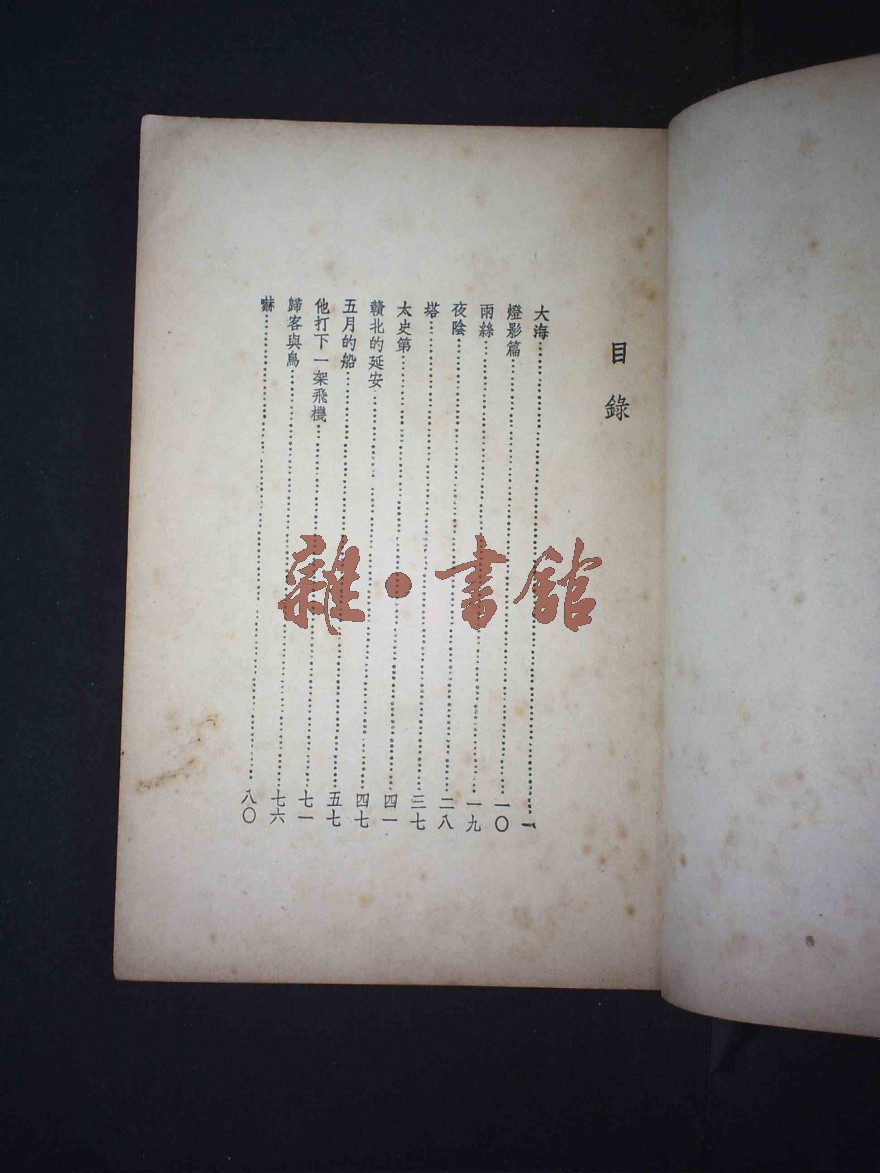 目錄
大海……一
燈影篇……一〇
雨絲……一九
夜陰……二八
塔……三七
太史第……四一
贛北的延安……四七
五月的船……五七
他打下一架飛機……七一
歸客與鳥……七六
嚇……八〇
雜·書館